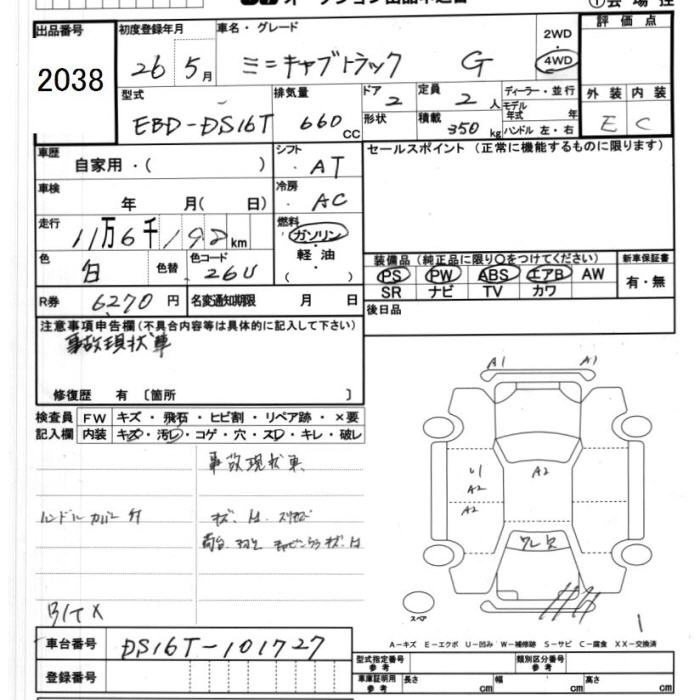 出品番号 初度登録年月 車名・グレード 2WD 評価点
2038 26 5月 ミニキャブトラック G 4WD
型式 排気量 ドア 2 定員 2人 ディーラー・並行 外装 内装
EBD-DS16T 660CC 形状 積載 350kg モデル年式 年 ハンドル 左・右 E C
車歴 自家用・( ) シフト AT セールスポイント(正常に機能するものに限ります)
車検 年 月( 日) 冷房 AC
走行 11万6千192km 燃料 ガソリン・軽油・( )
色 白 色替 色コード 26U 装備品(純正品に限り○をつけてください) 新車保証書
PS PW ABS エアB AW 有・無
SR ナビ TV カワ
R券 6270円 名変通知期限 月 日 後日品
注意事項申告欄(不具合内容等は具体的に記入して下さい)
事故現状車
修復歴 有 〔箇所 〕
検査員 FW キズ・飛石・ヒビ割・リペア跡・×要
記入欄 内装 キズ・汚レ・コゲ・穴・スレ・キレ・破レ
事故現状車
ハンドルカバー付
A1 A1
U1 A2
A2
A2
スペア
1
A-キズ E-エクボ U-凹み W-補修跡 S-サビ C-腐食 XX-交換済
車台番号 DS16T-101727
登録番号
型式指定番号 参考 類別区分番号 参考
車庫証明用 参考 長さ cm 幅 cm 高さ cm